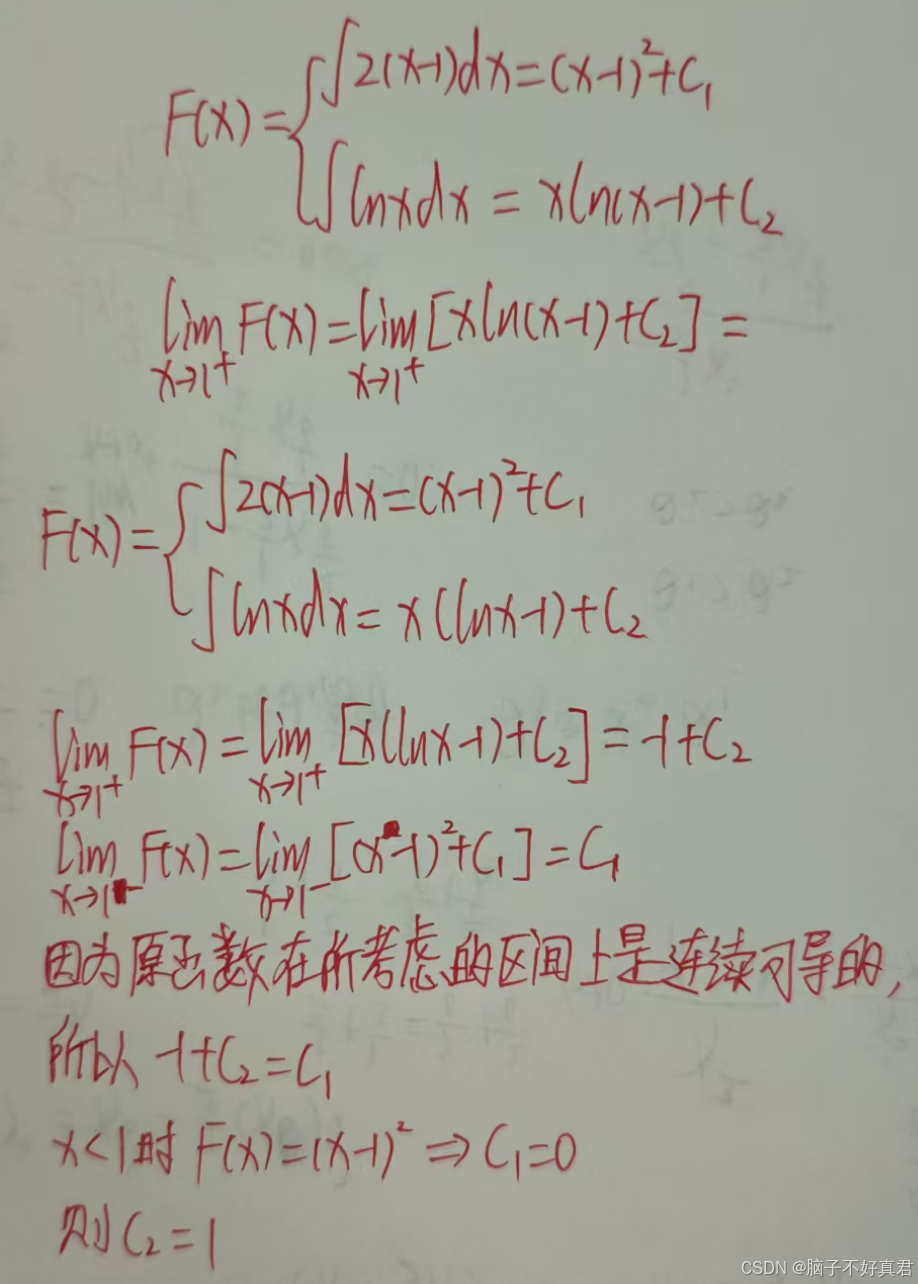 F(x) = { ∫2(x-1)dx = (x-1)²+C₁
∫lnxdx = xln(x-1)+C₂
lim x→1⁺ F(x) = lim x→1⁺ [xln(x-1)+C₂] =
F(x) = { ∫2(x-1)dx = (x-1)²+C₁
∫lnxdx = x(lnx-1)+C₂
lim x→1⁺ F(x) = lim x→1⁺ [x(lnx-1)+C₂] = -1+C₂
lim x→1⁻ F(x) = lim x→1⁻ [(x-1)²+C₁] = C₁
因为原函数在所考虑的区间上是连续可导的,
所以 -1+C₂=C₁
x<1时 F(x)=(x-1)² ⇒ C₁=0
则C₂=1
CSDN @脑子不好真君